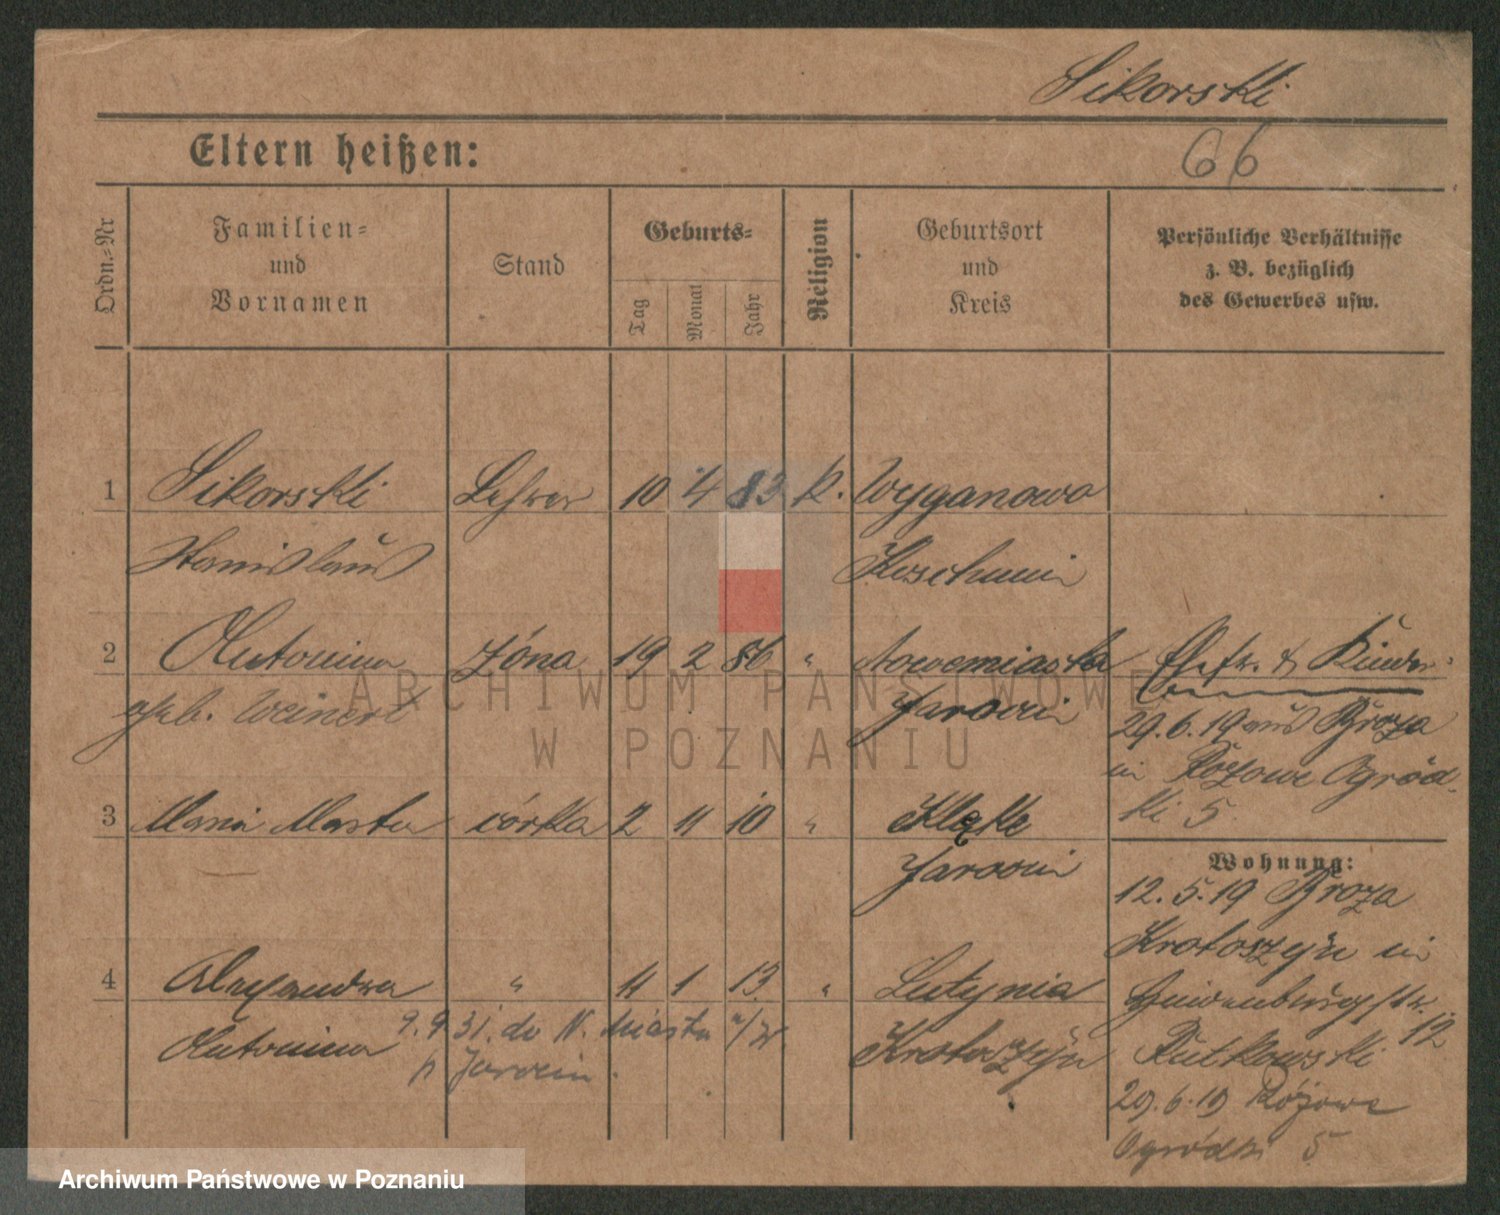 Sikorski
66
Eltern heißen:
Ordn.-Nr
Familien-
und
Vornamen
Stand
Geburts-
Tag
Monat
Jahr
Religion
Geburtsort
und
Kreis
Persönliche Verhältnisse
z. B. bezüglich
des Gewerbes usw.
1 Sikorski Lehrer 10 4 83 k. Wyganowo
Stanislaus Koschmin
2 Antonina żóna 19 2 86 " Nowemiasta
geb. Weinert Jarocin
3 Maria Marta córka 2 11 10 " Klęka
Jarocin
4 Alexandra " 11 1 13 " Lutynia
Antonina Krotoszyn
9.9 31. do N. Miasta n/W
p Jarocin.
Ehefr. & Kinder
29.6.19 aus Broza
in Różowe Ogród-
ki 5.
Wohnung:
12.5.19 Broza
Krotoszyn in
str.
12
Rutkowski
29.6.19 Różowe
Ogródki 5
ARCHIWUM PAŃSTWOWE
W POZNANIU
Archiwum Państwowe w Poznaniu